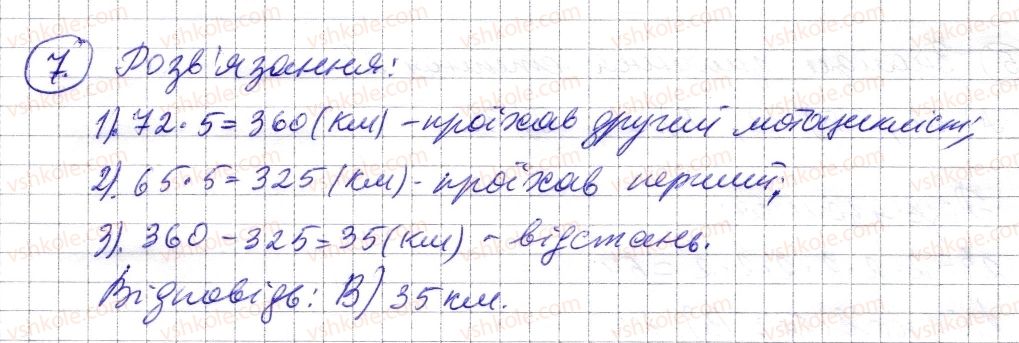 7. Розв'язання:
1). 72·5=360(км) – проїхав другий мотоцикліст;
2). 65·5=325(км) – проїхав перший;
3). 360–325=35(км) – відстань.
Відповідь: В) 35 км.